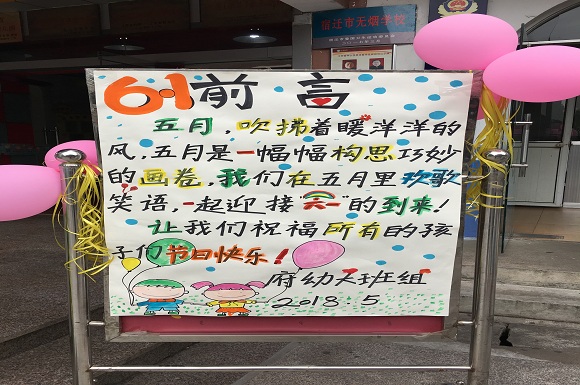 宿迁市无烟学校
61前言
五月,吹拂着暖洋洋的
风,五月是一幅幅构思巧妙
的画卷,我们在五月里欢歌
笑语,一起迎接"六一"的到来!
让我们祝福所有的孩
子们节日快乐!
府幼大班组
2018.5